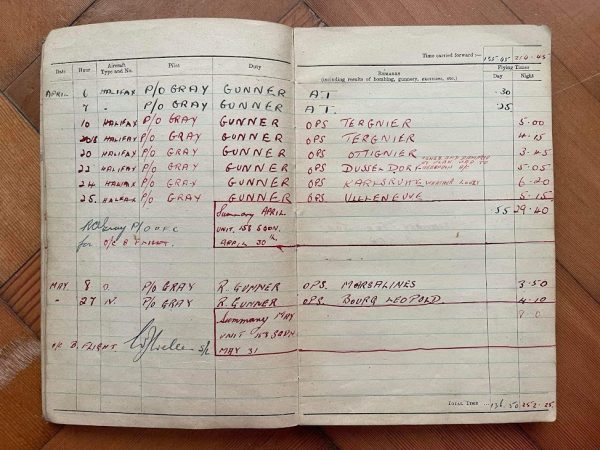 Time carried forward :— 135.45 214.45
Date Hour Aircraft Type and No. Pilot Duty Remarks (including results of bombing, gunnery, exercises, etc.) Flying Times Day Night
APRIL 6 HALIFAX P/O GRAY GUNNER A.T. .30
7 " P/O GRAY GUNNER A.T. .25
10 HALIFAX P/O GRAY GUNNER OPS TERGNIER 5.00
18 HALIFAX P/O GRAY GUNNER OPS TERGNIER 4.15
20 HALIFAX P/O GRAY GUNNER OPS OTTIGNIER 3.45
22 HALIFAX P/O GRAY GUNNER OPS DUSSELDORF 5.05
24 HALIFAX P/O GRAY GUNNER OPS KARLSRUHE WEATHER LOUSY 6.20
25. HALIFAX P/O GRAY GUNNER OPS VILLENEUVE 5.15
Summary APRIL .55 29.40
Gray P/O
UNIT. 158 SQDN.
for O/C B FLIGHT.
APRIL 30th
MAY 8 O. P/O GRAY R. GUNNER OPS MORSALINES 3.50
" 27 N. P/O GRAY R. GUNNER OPS BOURG LEOPOLD 4.10
Summary MAY 8.0
UNIT 158 SQDN
O/C B. FLIGHT. S/L MAY 31
TOTAL TIME ... 136.50 252.25